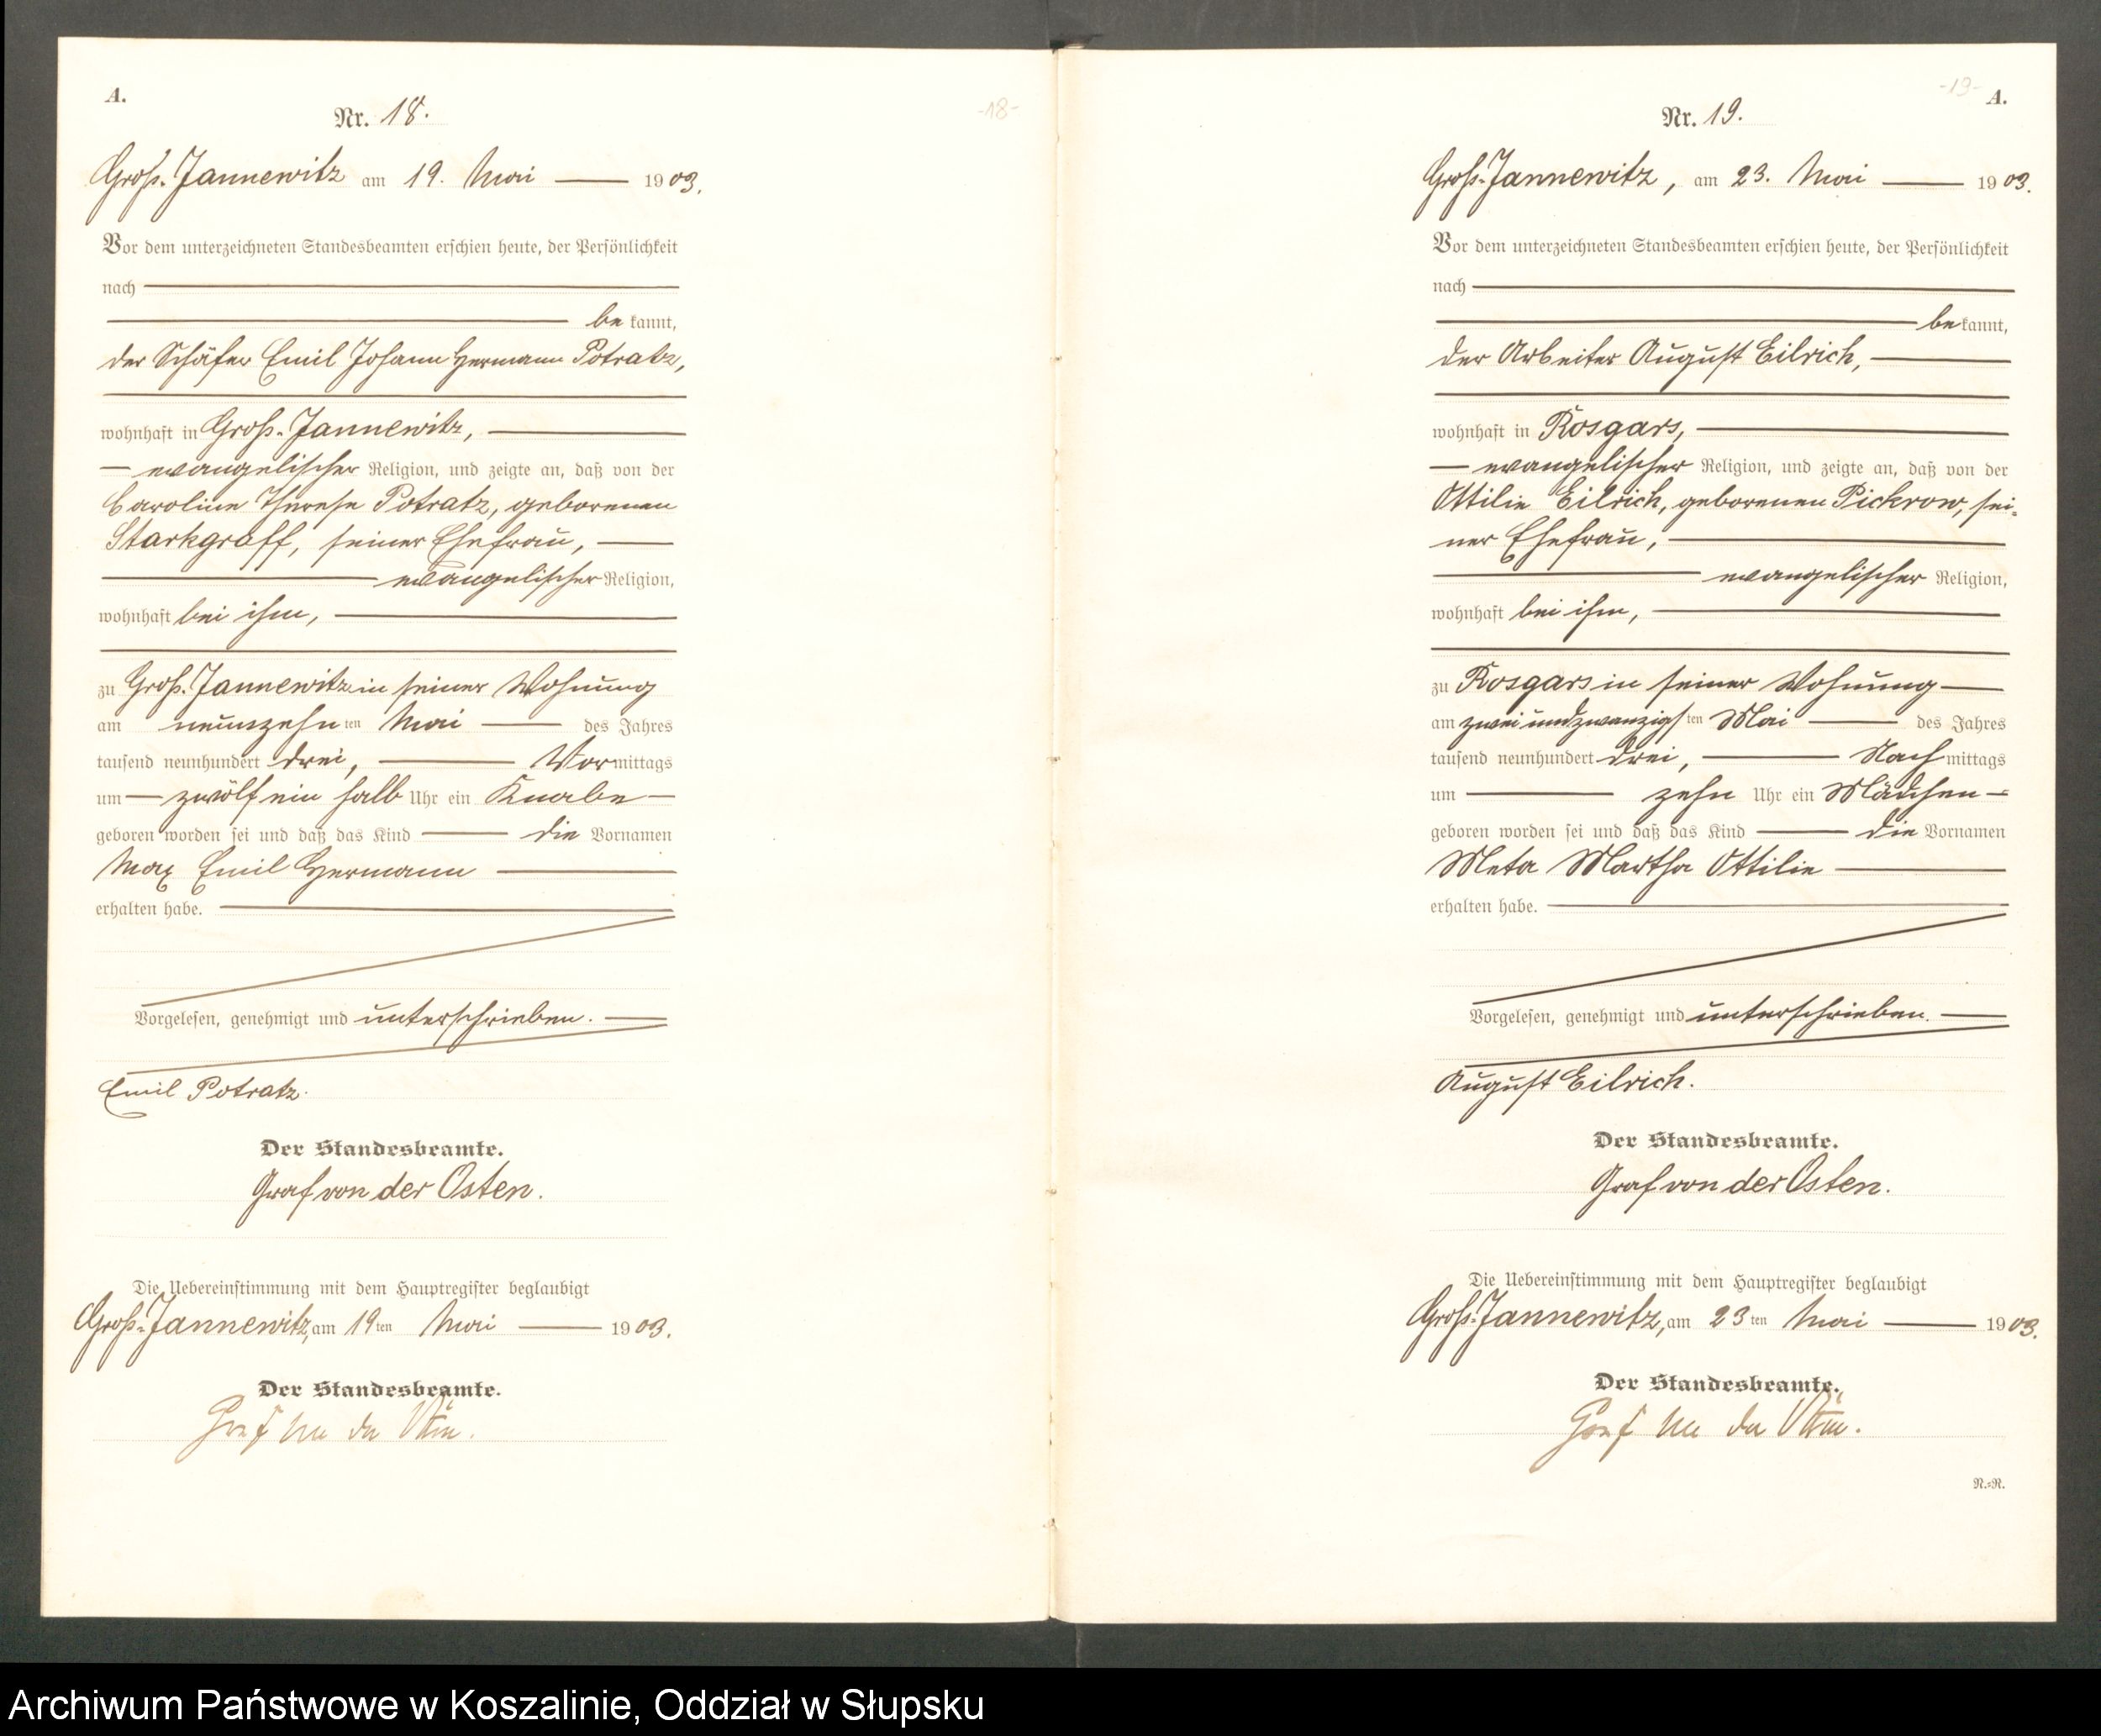 A.
-18-
Nr. 18.
Groß-Jannewitz am 19. Mai 1903.
Vor dem unterzeichneten Standesbeamten erschien heute, der Persönlichkeit
nach
bekannt,
der Schäfer Emil Johann Hermann Potratz,
wohnhaft in Groß-Jannewitz,
evangelischer Religion, und zeigte an, daß von der
Caroline Therese Potratz, geborenen
Starkgraff, seiner Ehefrau,
evangelischer Religion,
wohnhaft bei ihm,
zu Groß-Jannewitz in seiner Wohnung
am neunzehnten Mai des Jahres
tausend neunhundert drei, Vormittags
um zwölfein halb Uhr ein Knabe
geboren worden sei und daß das Kind die Vornamen
Max Emil Hermann
erhalten habe.
Vorgelesen, genehmigt und unterschrieben.
Emil Potratz.
Der Standesbeamte.
Graf von der Osten.
Die Uebereinstimmung mit dem Hauptregister beglaubigt
Groß-Jannewitz, am 19ten Mai 1903.
Der Standesbeamte.
Graf von der Osten.
-19-
A.
Nr. 19.
Groß-Jannewitz, am 23. Mai 1903.
Vor dem unterzeichneten Standesbeamten erschien heute, der Persönlichkeit
nach
bekannt,
der Arbeiter August Eilrich,
wohnhaft in Rosgars,
evangelischer Religion, und zeigte an, daß von der
Ottilie Eilrich, geborenen Pickrow, sei-
ner Ehefrau,
evangelischer Religion,
wohnhaft bei ihm,
zu Rosgars in seiner Wohnung
am zwei und zwanzigsten Mai des Jahres
tausend neunhundert drei, Nachmittags
um zehn Uhr ein Mädchen
geboren worden sei und daß das Kind die Vornamen
Meta Martha Ottilie
erhalten habe.
Vorgelesen, genehmigt und unterschrieben.
August Eilrich.
Der Standesbeamte.
Graf von der Osten.
Die Uebereinstimmung mit dem Hauptregister beglaubigt
Groß-Jannewitz, am 23ten Mai 1903.
Der Standesbeamte.
Graf von der Osten.
N.=R.
Archiwum Państwowe w Koszalinie, Oddział w Słupsku